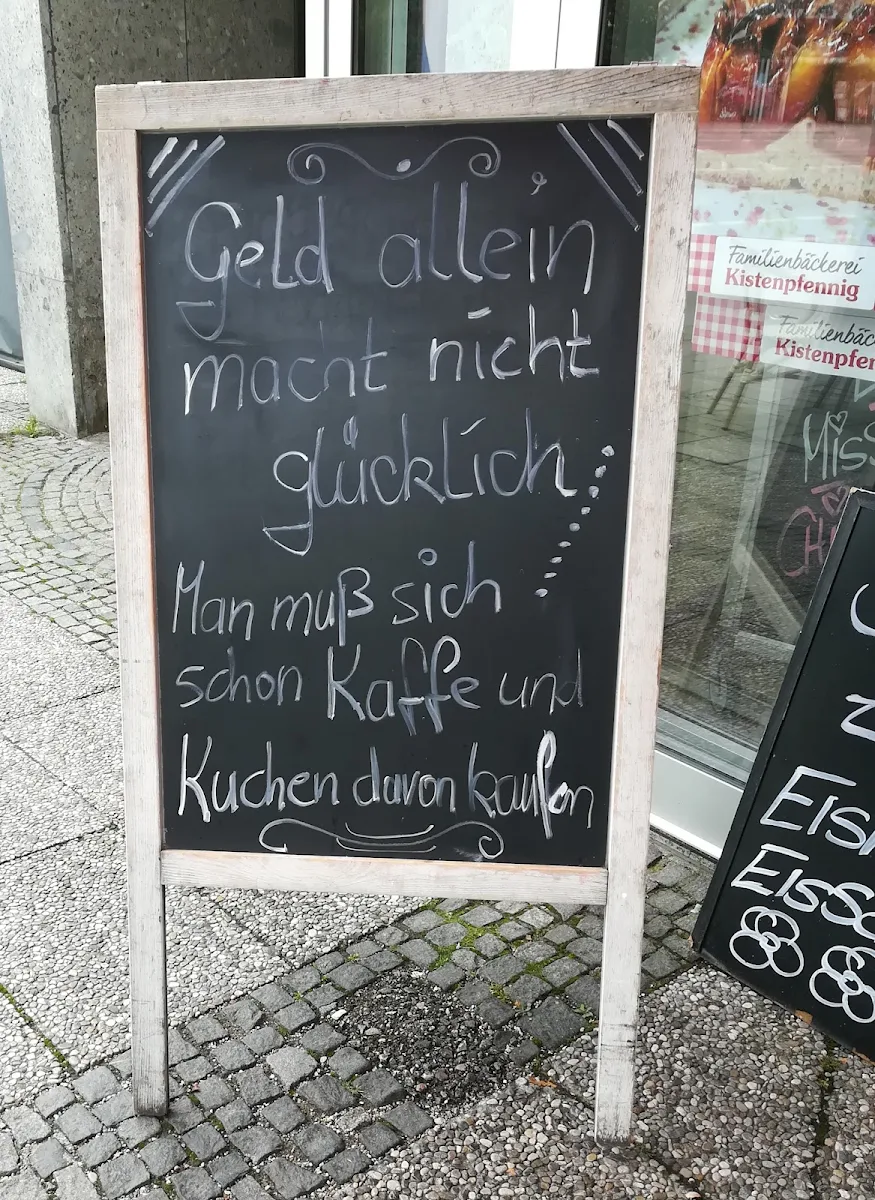 Geld allein
macht nicht
glücklich
Man muß sich
schon Kaffe und
Kuchen davon kaufen
Familienbäckerei
Kistenpfennig
Familienbäc
Kistenpfen
Miss
Eis
Eissc